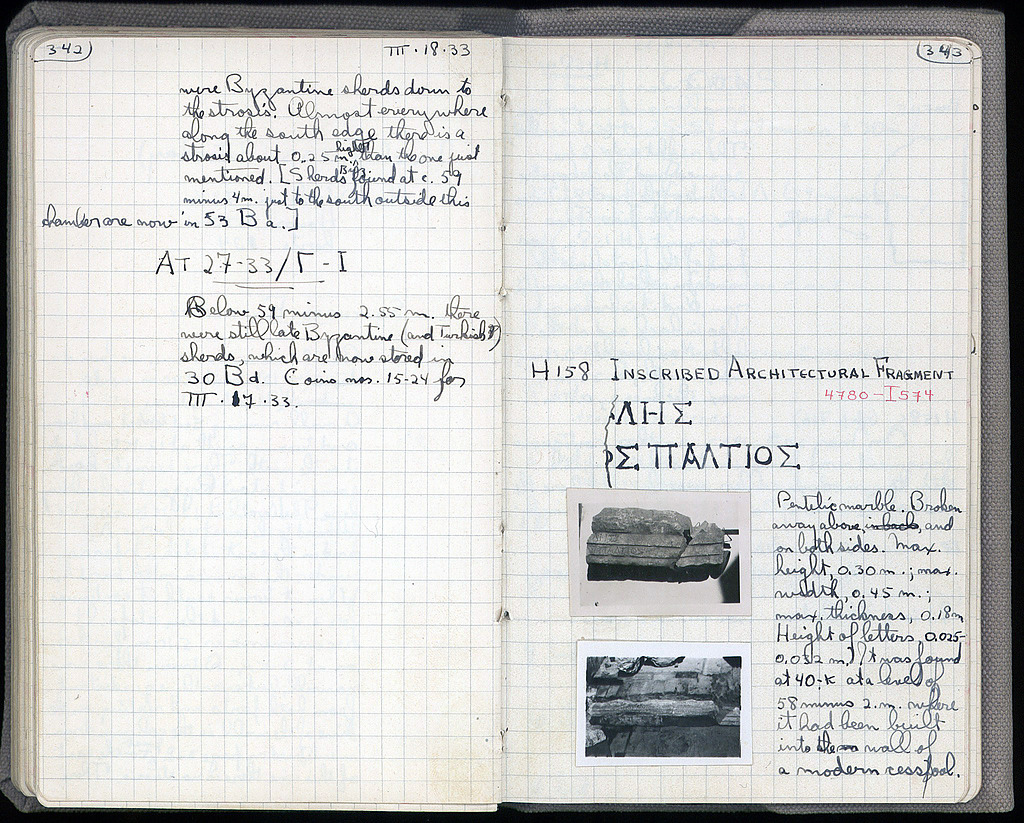 342
III · 18 · 33
were Byzantine sherds down to
the strosis. Almost everywhere
along the south edge there is a
strosis about 0.25 m. higher than the one just
mentioned. [Sherds found at c. 59
minus 4 m. just to the south outside this
chamber are now in 53 B a.]
AT 27-33/Γ - I
Below 59 minus 2.55 m. there
were still late Byzantine (and Turkish?)
sherds, which are now stored in
30 B d. Coins nos. 15-24 for
III · 17 · 33.
343
H 158 INSCRIBED ARCHITECTURAL FRAGMENT
4780 - I 574
ΛΗΣ
Σ ΠΑΛΤΙΟΣ
Pentelic marble. Broken
away above, in back, and
on both sides. Max.
height, 0.30 m.; max.
width, 0.45 m.;
max. thickness, 0.18 m
Height of letters, 0.025-
0.032 m. It was found
at 40-K at a level of
58 minus 2. m. where
it had been built
into the wall of
a modern cesspool.